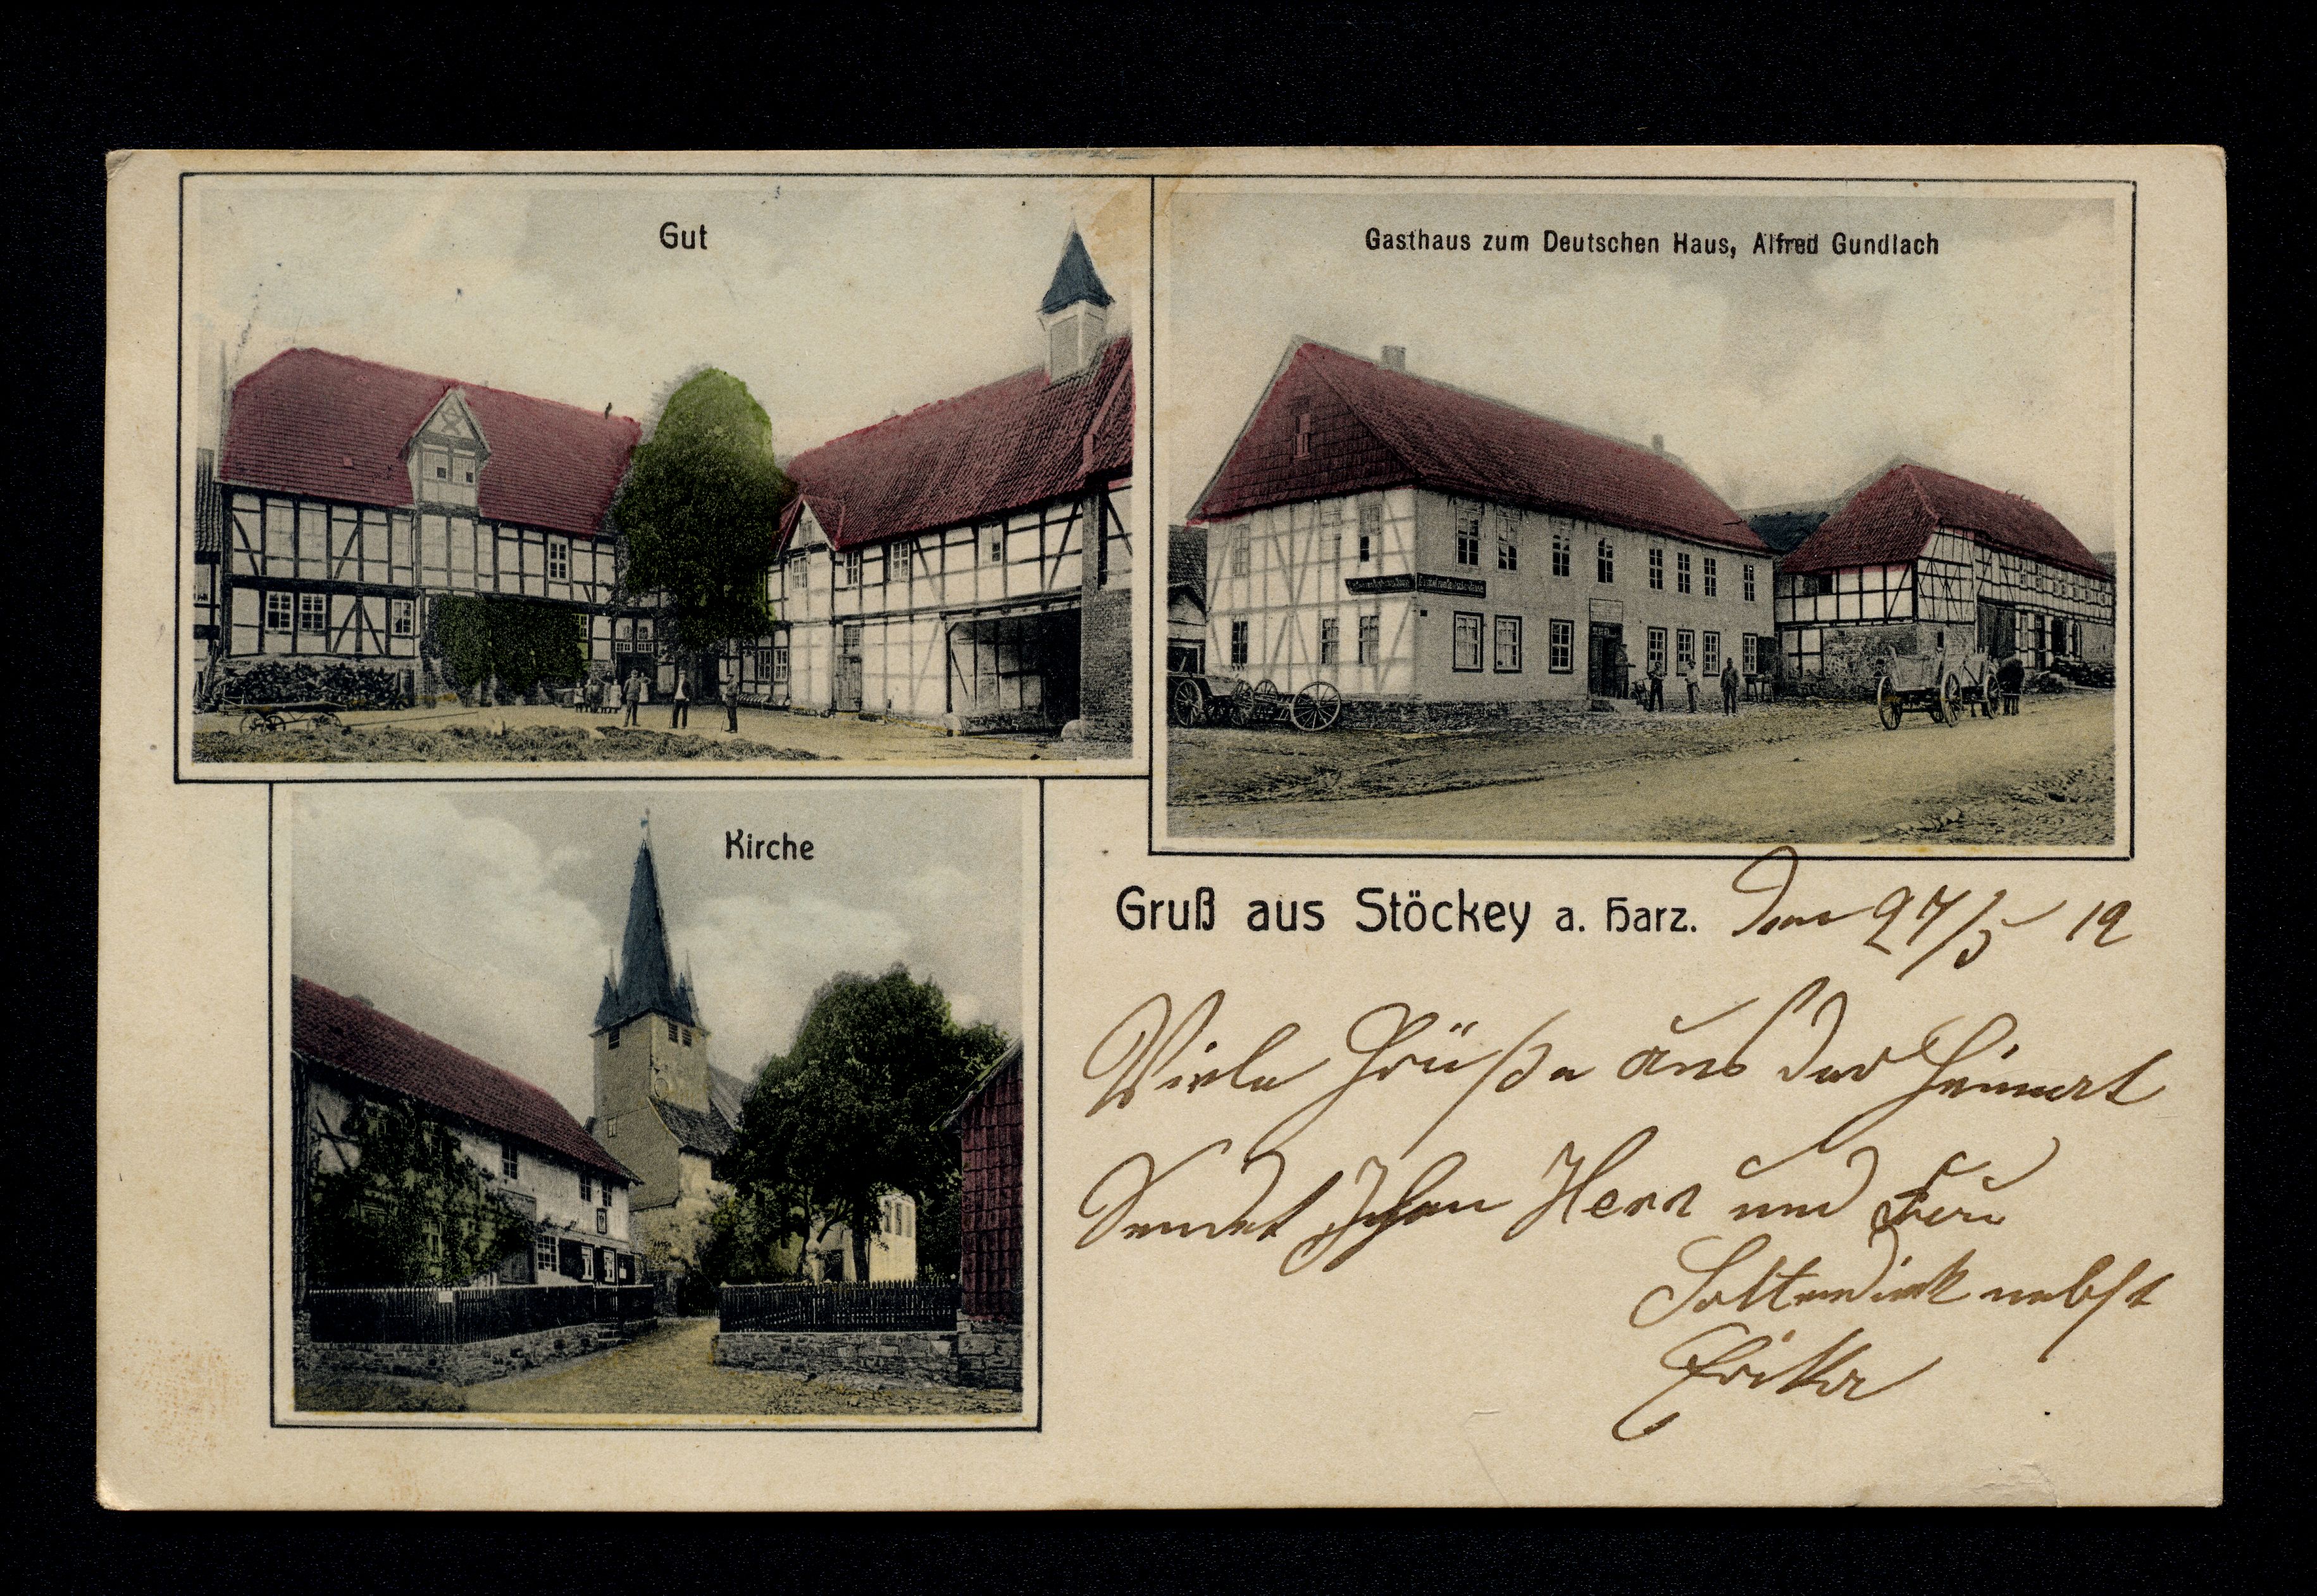 Gut
Gasthaus zum Deutschen Haus, Alfred Gundlach
Kirche
Gruß aus Stöckey a. Harz. Den 27/5 12
Viele Grüße aus der Heimat
Sendet Ihnen Herr und Frau
nebst